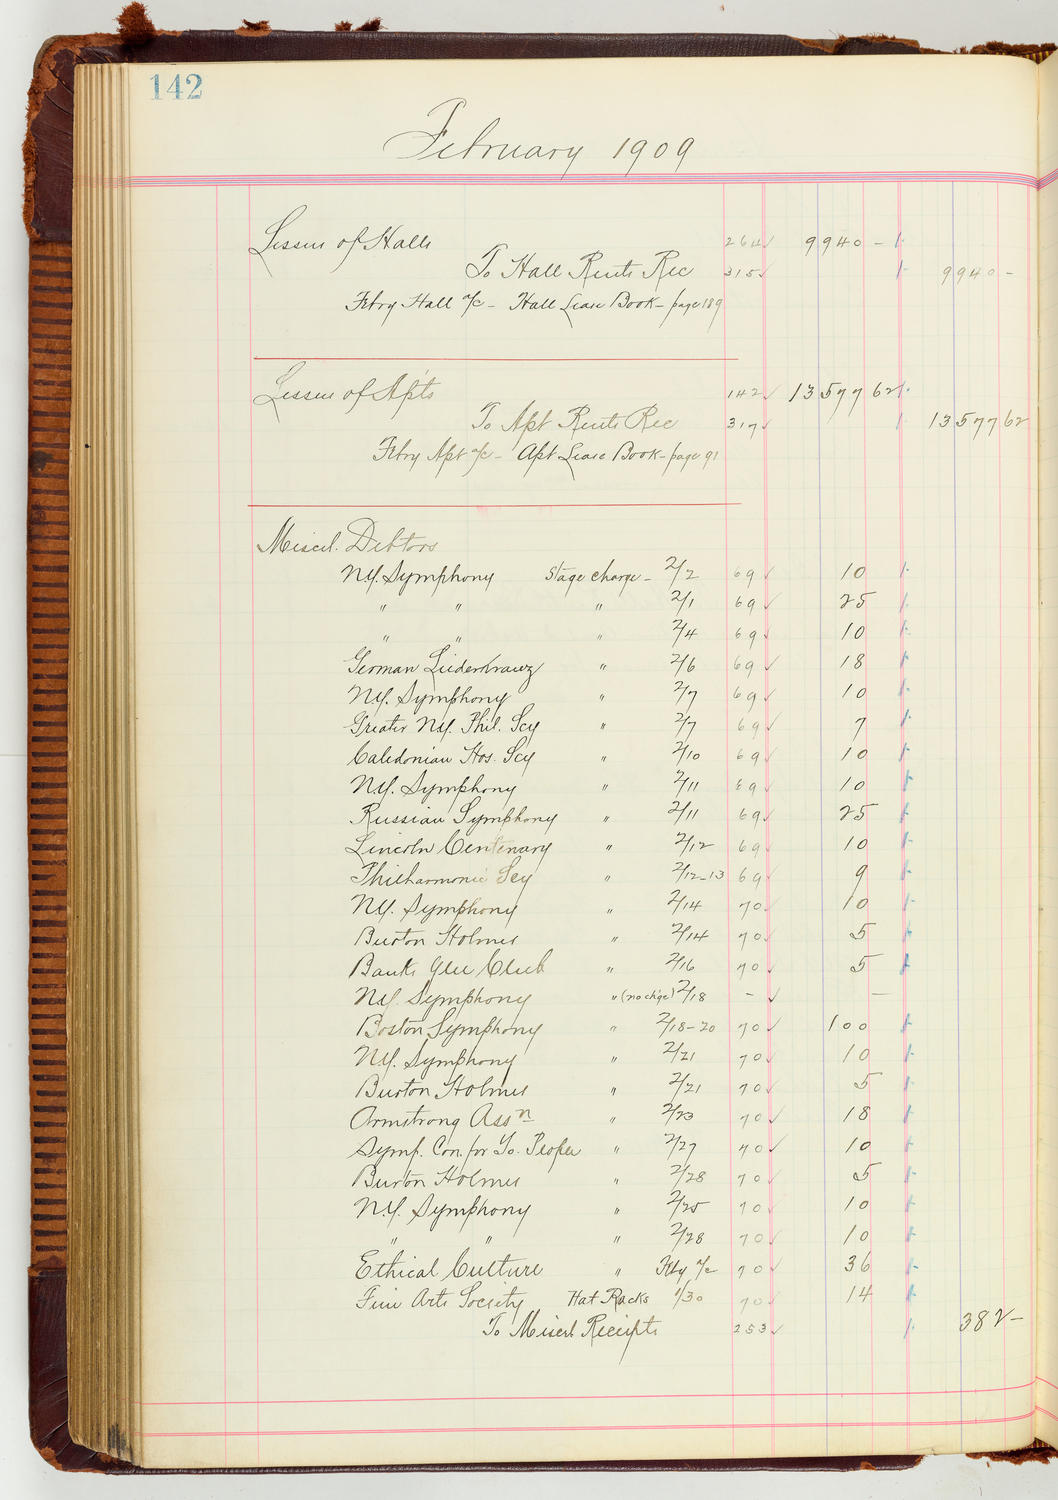 142
February 1909
Lessees of Halls 264 9940 -
To Hall Rents Rec 315 9940 -
Febry Hall a/c - Hall Lease Book - page 189
Lessees of Apts 142 13577 62
To Apt Rents Rec 317 13577 62
Febry Apt a/c - Apt Lease Book - page 91
Miscel. Debtors
N.Y. Symphony Stage charge - 2/2 69 10
" " " 2/1 69 25
" " " 2/4 69 10
German Liederkranz " 2/6 69 18
N.Y. Symphony " 2/7 69 10
Greater N.Y. Phil. Scy " 2/7 69 7
Caledonian Hos. Scy " 2/10 69 10
N.Y. Symphony " 2/11 69 10
Russian Symphony " 2/11 69 25
Lincoln Centenary " 2/12 69 10
Philharmonic Scy " 2/12-13 69 9
N.Y. Symphony " 2/14 70 10
Burton Holmes " 2/14 70 5
Banks Glee Club " 2/16 70 5
N.Y. Symphony " (no chge) 2/18 - -
Boston Symphony " 2/18-20 70 100
N.Y. Symphony " 2/21 70 10
Burton Holmes " 2/21 70 5
Armstrong Assn " 2/23 70 18
Symp. Con. for Yo. People " 2/27 70 10
Burton Holmes " 2/28 70 5
N.Y. Symphony " 2/25 70 10
" " " 2/28 70 10
Ethical Culture " Feby a/c 70 36
Fine Arts Society Hat Racks 1/30 70 14
To Miscel Receipts 253 382 -